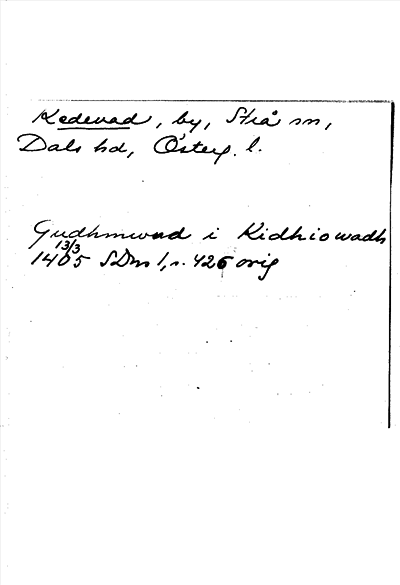 Kedevad, by, Strå sn,
Dals hd, Österg. l.
Gudhmund i Kidhiowadh
13/3
1405 SDns 1, s. 426 orig